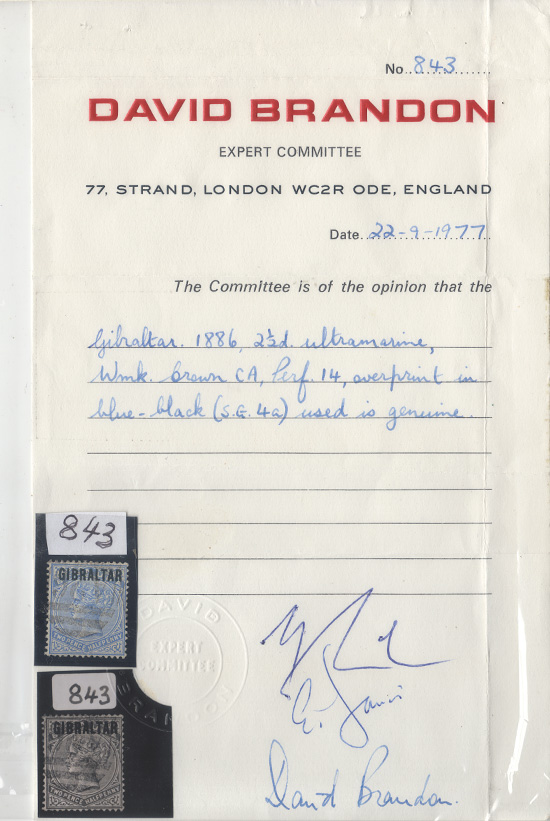 No. 843
DAVID BRANDON
EXPERT COMMITTEE
77, STRAND, LONDON WC2R ODE, ENGLAND
Date. 22-9-1977.
The Committee is of the opinion that the
Gibraltar. 1886, 2½d. ultramarine,
Wmk. Crown CA, Perf. 14, overprint in
blue-black (S.G. 4a) used is genuine.
843
GIBRALTAR
TWO PENCE HALFPENNY
DAVID
EXPERT
COMMITTEE
BRANDON
843
GIBRALTAR
TWO PENCE HALFPENNY
David Brandon.